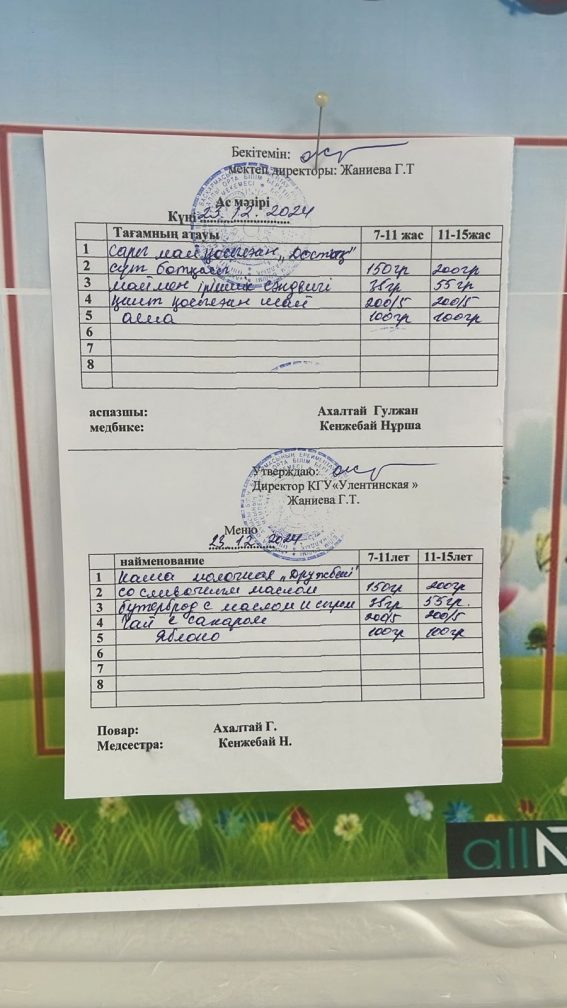 Бекітемін:
мектеп директоры: Жаниева Г.Т
Ас мәзірі
Күні 23.12.2024
Тағамның атауы 7-11 жас 11-15жас
1 сары май қосылған „Достық"
2 сүт ботқасы 150гр 200гр
3 маймен ірімшік сэндвичі 35гр 55гр
4 қант қосылған шай 200/5 200/5
5 алма 100гр 100гр
6
7
8
аспазшы: Ахалтай Гулжан
медбике: Кенжебай Нұрша
Утверждаю:
Директор КГУ«Улентинская »
Жаниева Г.Т.
Меню
23 12 2024
найменование 7-11лет 11-15лет
1 Каша молочная „Дружбой"
2 со сливочным маслом 150гр 200гр
3 бутерброд с маслом и сыром 35гр 55гр.
4 Чай с сахаром 200/5 200/5
5 Яблоко 100гр 100гр
6
7
8
Повар: Ахалтай Г.
Медсестра: Кенжебай Н.